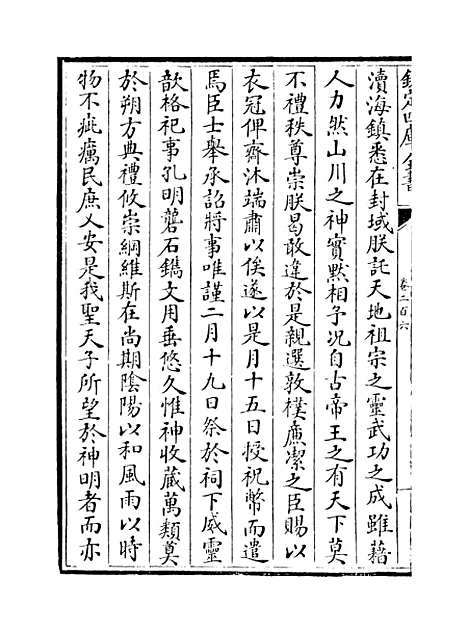 欽定四庫全書
卷二百六
瀆海鎮悉在封域朕託天地祖宗之靈武功之成雖藉
人力然山川之神實黙相予况自古帝王之有天下莫
不禮秩尊崇朕曷敢違於是親選敦樸亷潔之臣賜以
衣冠俾齋沐端肅以俟遂以是月十五日授祝幣而遣
焉臣士舉承詔將事唯謹二月十九日祭於祠下威靈
歆格祀事孔明礱石鐫文用垂悠久惟神收蔵萬類奠
於朔方典禮攸崇綱維斯在尚期陰陽以和風雨以時
物不疵癘民庶乂安是我聖天子所望於神明者而亦